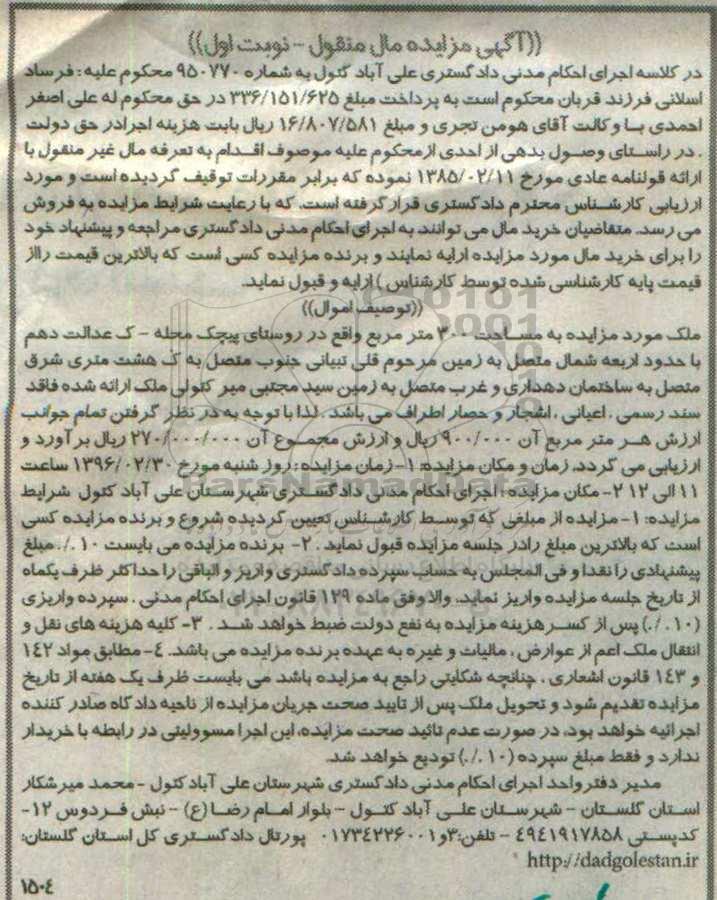 ((آگهی مزایده مال منقول - نوبت اول))
در کلاسه اجرای احکام مدنی دادگستری علی آباد کتول به شماره ۹۵۰۷۷۰ محکوم علیه : فرساد
اسلانی فرزند قربان محکوم است به پرداخت مبلغ ۳۳۶/۱۵۱/۶۲۵ در حق محکوم له علی اصغر
احمدی با وکالت آقای هومن تجری و مبلغ ۱۶/۸۰۷/۵۸۱ ریال بابت هزینه اجرا در حق دولت
. در راستای وصول بدهی از احدی از محکوم علیه موصوف اقدام به تعرفه مال غیر منقول با
ارائه قولنامه عادی مورخ ۱۳۸۵/۰۲/۱۱ نموده که برابر مقررات توقیف گردیده است و مورد
ارزیابی کارشناس محترم دادگستری قرار گرفته است. که با رعایت شرایط مزایده به فروش
می رسد. متقاضیان خرید مال می توانند به اجرای احکام مدنی دادگستری مراجعه و پیشنهاد خود
را برای خرید مال مورد مزایده ارایه نمایند و برنده مزایده کسی است که بالاترین قیمت رااز
قیمت پایه کارشناسی شده توسط کارشناس ) ارایه و قبول نماید.
((توصیف اموال))
ملک مورد مزایده به مساحت ۳۰۰ متر مربع واقع در روستای پیچک محله - ک عدالت دهم
با حدود اربعه شمال متصل به زمین مرحوم قلی تبیانی جنوب متصل به ک هشت متری شرق
متصل به ساختمان دهداری و غرب متصل به زمین سید مجتبی میر کتولی ملک ارائه شده فاقد
سند رسمی ، اعیانی ، اشجار و حصار اطراف می باشد . لذا با توجه به در نظر گرفتن تمام جوانب
ارزش هر متر مربع آن ۹۰۰/۰۰۰ ریال و ارزش مجموع آن ۲۷۰/۰۰۰/۰۰۰ ریال برآورد و
ارزیابی می گردد. زمان و مکان مزایده: ۱- زمان مزایده : روز شنبه مورخ ۱۳۹۶/۰۲/۳۰ ساعت
۱۱ الی ۱۲ ۲- مکان مزایده : اجرای احکام مدنی دادگستری شهرستان علی آباد کتول شرایط
مزایده: ۱- مزایده از مبلغی که توسط کارشناس تعیین گردیده شروع و برنده مزایده کسی
است که بالاترین مبلغ رادر جلسه مزایده قبول نماید . ۲- برنده مزایده می بایست ۱۰ ./. مبلغ
پیشنهادی را نقدا و فی المجلس به حساب سپرده دادگستری واریز و الباقی را حداکثر ظرف یکماه
از تاریخ جلسه مزایده واریز نماید. والا وفق ماده ۱۲۹ قانون اجرای احکام مدنی ، سپرده واریزی
(۱۰./.) پس از کسر هزینه مزایده به نفع دولت ضبط خواهد شد . ۳- کلیه هزینه های نقل و
انتقال ملک اعم از عوارض ، مالیات و غیره به عهده برنده مزایده می باشد. ۴- مطابق مواد ۱۴۲
و ۱۴۳ قانون اشعاری ، چنانچه شکایتی راجع به مزایده باشد می بایست ظرف یک هفته از تاریخ
مزایده تقدیم شود و تحویل ملک پس از تایید صحت جریان مزایده از ناحیه دادگاه صادر کننده
اجرائیه خواهد بود. در صورت عدم تائید صحت مزایده، این اجرا مسوولیتی در رابطه با خریدار
ندارد و فقط مبلغ سپرده (۱۰./.) تودیع خواهد شد.
مدیر دفتر واحد اجرای احکام مدنی دادگستری شهرستان علی آباد کتول - محمد میرشکار
استان گلستان - شهرستان علی آباد کتول - بلوار امام رضا (ع) - نبش فردوس ۱۲-
کدپستی ۴۹۴۱۹۱۷۸۵۸ - تلفن:۳و۰۱۷۳۴۲۲۶۰۰۱ پورتال دادگستری کل استان گلستان:
http://dadgolestan.ir
۱۵۰۴
ParsNamadData